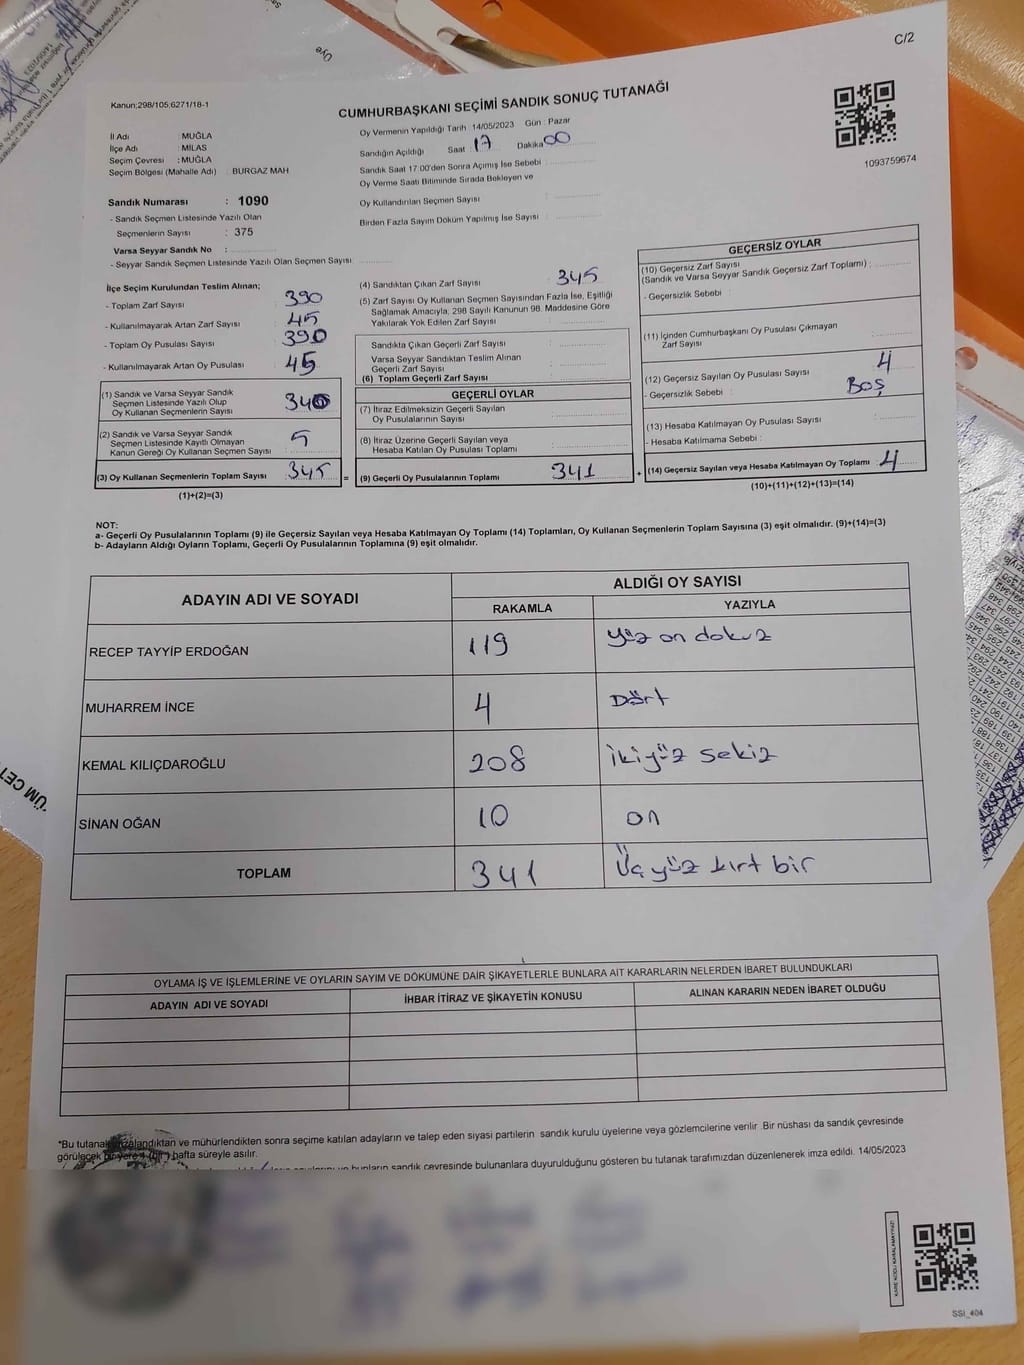 C/2
Kanun;298/105;6271/18-1
CUMHURBAŞKANI SEÇİMİ SANDIK SONUÇ TUTANAĞI
1093759674
İl Adı : MUĞLA
İlçe Adı : MİLAS
Seçim Çevresi : MUĞLA
Seçim Bölgesi (Mahalle Adı) : BURGAZ MAH
Oy Vermenin Yapıldığı Tarih 14/05/2023 Gün : Pazar
Sandığın Açıldığı Saat : 17 Dakika : 00
Sandık Saat 17:00'den Sonra Açılmış İse Sebebi :
Oy Verme Saati Bitiminde Sırada Bekleyen ve
Oy Kullandırılan Seçmen Sayısı :
Birden Fazla Sayım Döküm Yapılmış İse Sayısı :
Sandık Numarası : 1090
- Sandık Seçmen Listesinde Yazılı Olan
Seçmenlerin Sayısı : 375
Varsa Seyyar Sandık No :
- Seyyar Sandık Seçmen Listesinde Yazılı Olan Seçmen Sayısı:
İlçe Seçim Kurulundan Teslim Alınan;
- Toplam Zarf Sayısı : 390
- Kullanılmayarak Artan Zarf Sayısı : 45
- Toplam Oy Pusulası Sayısı : 390
- Kullanılmayarak Artan Oy Pusulası : 45
(1) Sandık ve Varsa Seyyar Sandık
Seçmen Listesinde Yazılı Olup
Oy Kullanan Seçmenlerin Sayısı : 340
(2) Sandık ve Varsa Seyyar Sandık
Seçmen Listesinde Kayıtlı Olmayan
Kanun Gereği Oy Kullanan Seçmen Sayısı : 5
(3) Oy Kullanan Seçmenlerin Toplam Sayısı : 345
(1)+(2)=(3)
(4) Sandıktan Çıkan Zarf Sayısı : 345
(5) Zarf Sayısı Oy Kullanan Seçmen Sayısından Fazla İse, Eşitliği
Sağlamak Amacıyla; 298 Sayılı Kanunun 98. Maddesine Göre
Yakılarak Yok Edilen Zarf Sayısı :
Sandıkta Çıkan Geçerli Zarf Sayısı :
Varsa Seyyar Sandıktan Teslim Alınan
Geçerli Zarf Sayısı :
(6) Toplam Geçerli Zarf Sayısı :
GEÇERLİ OYLAR
(7) İtiraz Edilmeksizin Geçerli Sayılan
Oy Pusulalarının Sayısı :
(8) İtiraz Üzerine Geçerli Sayılan veya
Hesaba Katılan Oy Pusulası Toplamı :
= (9) Geçerli Oy Pusulalarının Toplamı : 341 +
GEÇERSİZ OYLAR
(10) Geçersiz Zarf Sayısı
(Sandık ve Varsa Seyyar Sandık Geçersiz Zarf Toplamı) :
- Geçersizlik Sebebi :
(11) İçinden Cumhurbaşkanı Oy Pusulası Çıkmayan
Zarf Sayısı :
(12) Geçersiz Sayılan Oy Pusulası Sayısı : 4
- Geçersizlik Sebebi : BOŞ
(13) Hesaba Katılmayan Oy Pusulası Sayısı :
- Hesaba Katılmama Sebebi :
(14) Geçersiz Sayılan veya Hesaba Katılmayan Oy Toplamı : 4
(10)+(11)+(12)+(13)=(14)
NOT:
a- Geçerli Oy Pusulalarının Toplamı (9) ile Geçersiz Sayılan veya Hesaba Katılmayan Oy Toplamı (14) Toplamları, Oy Kullanan Seçmenlerin Toplam Sayısına (3) eşit olmalıdır. (9)+(14)=(3)
b- Adayların Aldığı Oyların Toplamı, Geçerli Oy Pusulalarının Toplamına (9) eşit olmalıdır.
ADAYIN ADI VE SOYADI
ALDIĞI OY SAYISI
RAKAMLA YAZIYLA
RECEP TAYYİP ERDOĞAN 119 Yüz on dokuz
MUHARREM İNCE 4 Dört
KEMAL KILIÇDAROĞLU 208 İkiyüz sekiz
SİNAN OĞAN 10 on
TOPLAM 341 Üçyüz kırt bir
OYLAMA İŞ VE İŞLEMLERİNE VE OYLARIN SAYIM VE DÖKÜMÜNE DAİR ŞİKAYETLERLE BUNLARA AİT KARARLARIN NELERDEN İBARET BULUNDUKLARI
ADAYIN ADI VE SOYADI İHBAR İTİRAZ VE ŞİKAYETİN KONUSU ALINAN KARARIN NEDEN İBARET OLDUĞU
*Bu tutanak imzalandıktan ve mühürlendikten sonra seçime katılan adayların ve talep eden siyasi partilerin sandık kurulu üyelerine veya gözlemcilerine verilir. Bir nüshası da sandık çevresinde
görülecek bir yere 1 (bir) hafta süreyle asılır.
bunların sandık çevresinde bulunanlara duyurulduğunu gösteren bu tutanak tarafımızdan düzenlenerek imza edildi. 14/05/2023
KARE KODU KARALAMAYINIZ!
SSI_404